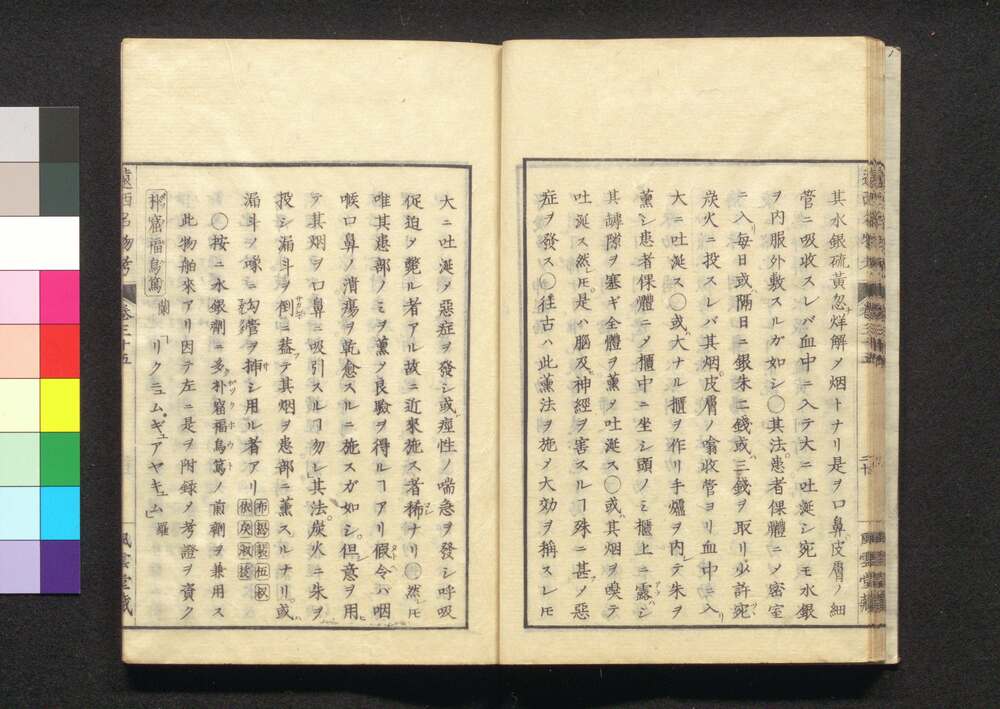 其水銀硫黄忽烊解メ烟トナリ是ヲ口鼻皮膚ノ細
管ニ吸收スレバ血中ニ入テ大ニ吐涎シ宛モ水銀
ヲ内服外敷スルガ如シ〇其法患者倮體ニメ密室
ニ入リ毎日或ハ隔日ニ銀朱二錢或ハ三錢ヲ取リ少許宛
炭火ニ投スレバ其烟皮膚ノ噏收管ヨリ血中ニ入リ
大ニ吐涎ス〇或ハ大ナル櫃ヲ作リ手爐ヲ内レテ朱ヲ
薫シ患者倮體ニメ櫃中ニ坐シ頭ノミ櫃上ニ露ハシ
其罅隙ヲ塞ギ全體ヲ薫メ吐涎ス〇或ハ其烟ヲ嗅テ
吐涎ス然レ𪜈是ハ腦及ビ神經ヲ害スルヿ殊ニ甚フメ惡
症ヲ發ス〇往古ハ此薫法ヲ施メ大効ヲ稱スレ𪜈
大ニ吐涎メ惡症ヲ發シ或ハ痙性ノ喘急ヲ發シ呼吸
促迫メ斃ル者アル故ニ近來施ス者稀ナリ〇然レ𪜈
唯其患部ノミヲ薫メ良驗ヲ得ルヿアリ假令ハ咽
喉口鼻ノ潰瘍ヲ乾愈スルニ施スガ如シ但シ意ヲ用ヒ
テ其烟ヲ口鼻ニ吸引スルヿ勿レ其法炭火ニ朱ヲ
投シ漏斗ヲ倒ニ葢テ其烟ヲ患部ニ薫スルナリ或ハ
漏斗ノ喙ニ勾管ヲ挿シ用ル者アリ
〇按ニ水銀劑ニ多ク朴窟福烏篤ノ煎劑ヲ兼用ス
此物舶來アリ因テ左ニ是ヲ附録メ考證ヲ資ク
朴窟福烏篤 蘭 リクニュム、ギュアヤキュム 羅
遠西名物考 卷三十五 風雲堂藏